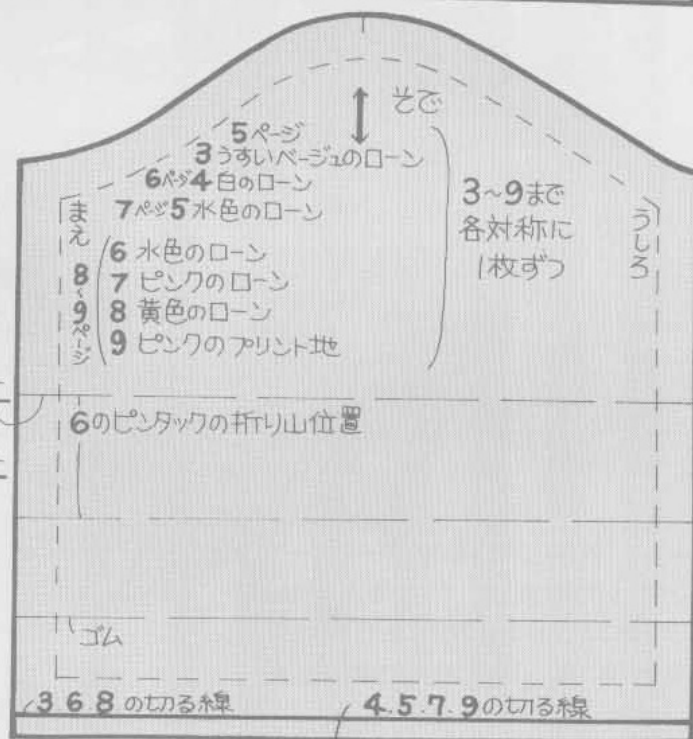 そで
5ページ
3 うすいベージュのローン
6ページ 4 白のローン
7ページ 5 水色のローン
まえ
8~9ページ
6 水色のローン
7 ピンクのローン
8 黄色のローン
9 ピンクのプリント地
3~9まで
各対称に
1枚ずつ
うしろ
6のピンタックの折り山位置
ゴム
3 6 8 の切る線
4.5.7.9の切る線